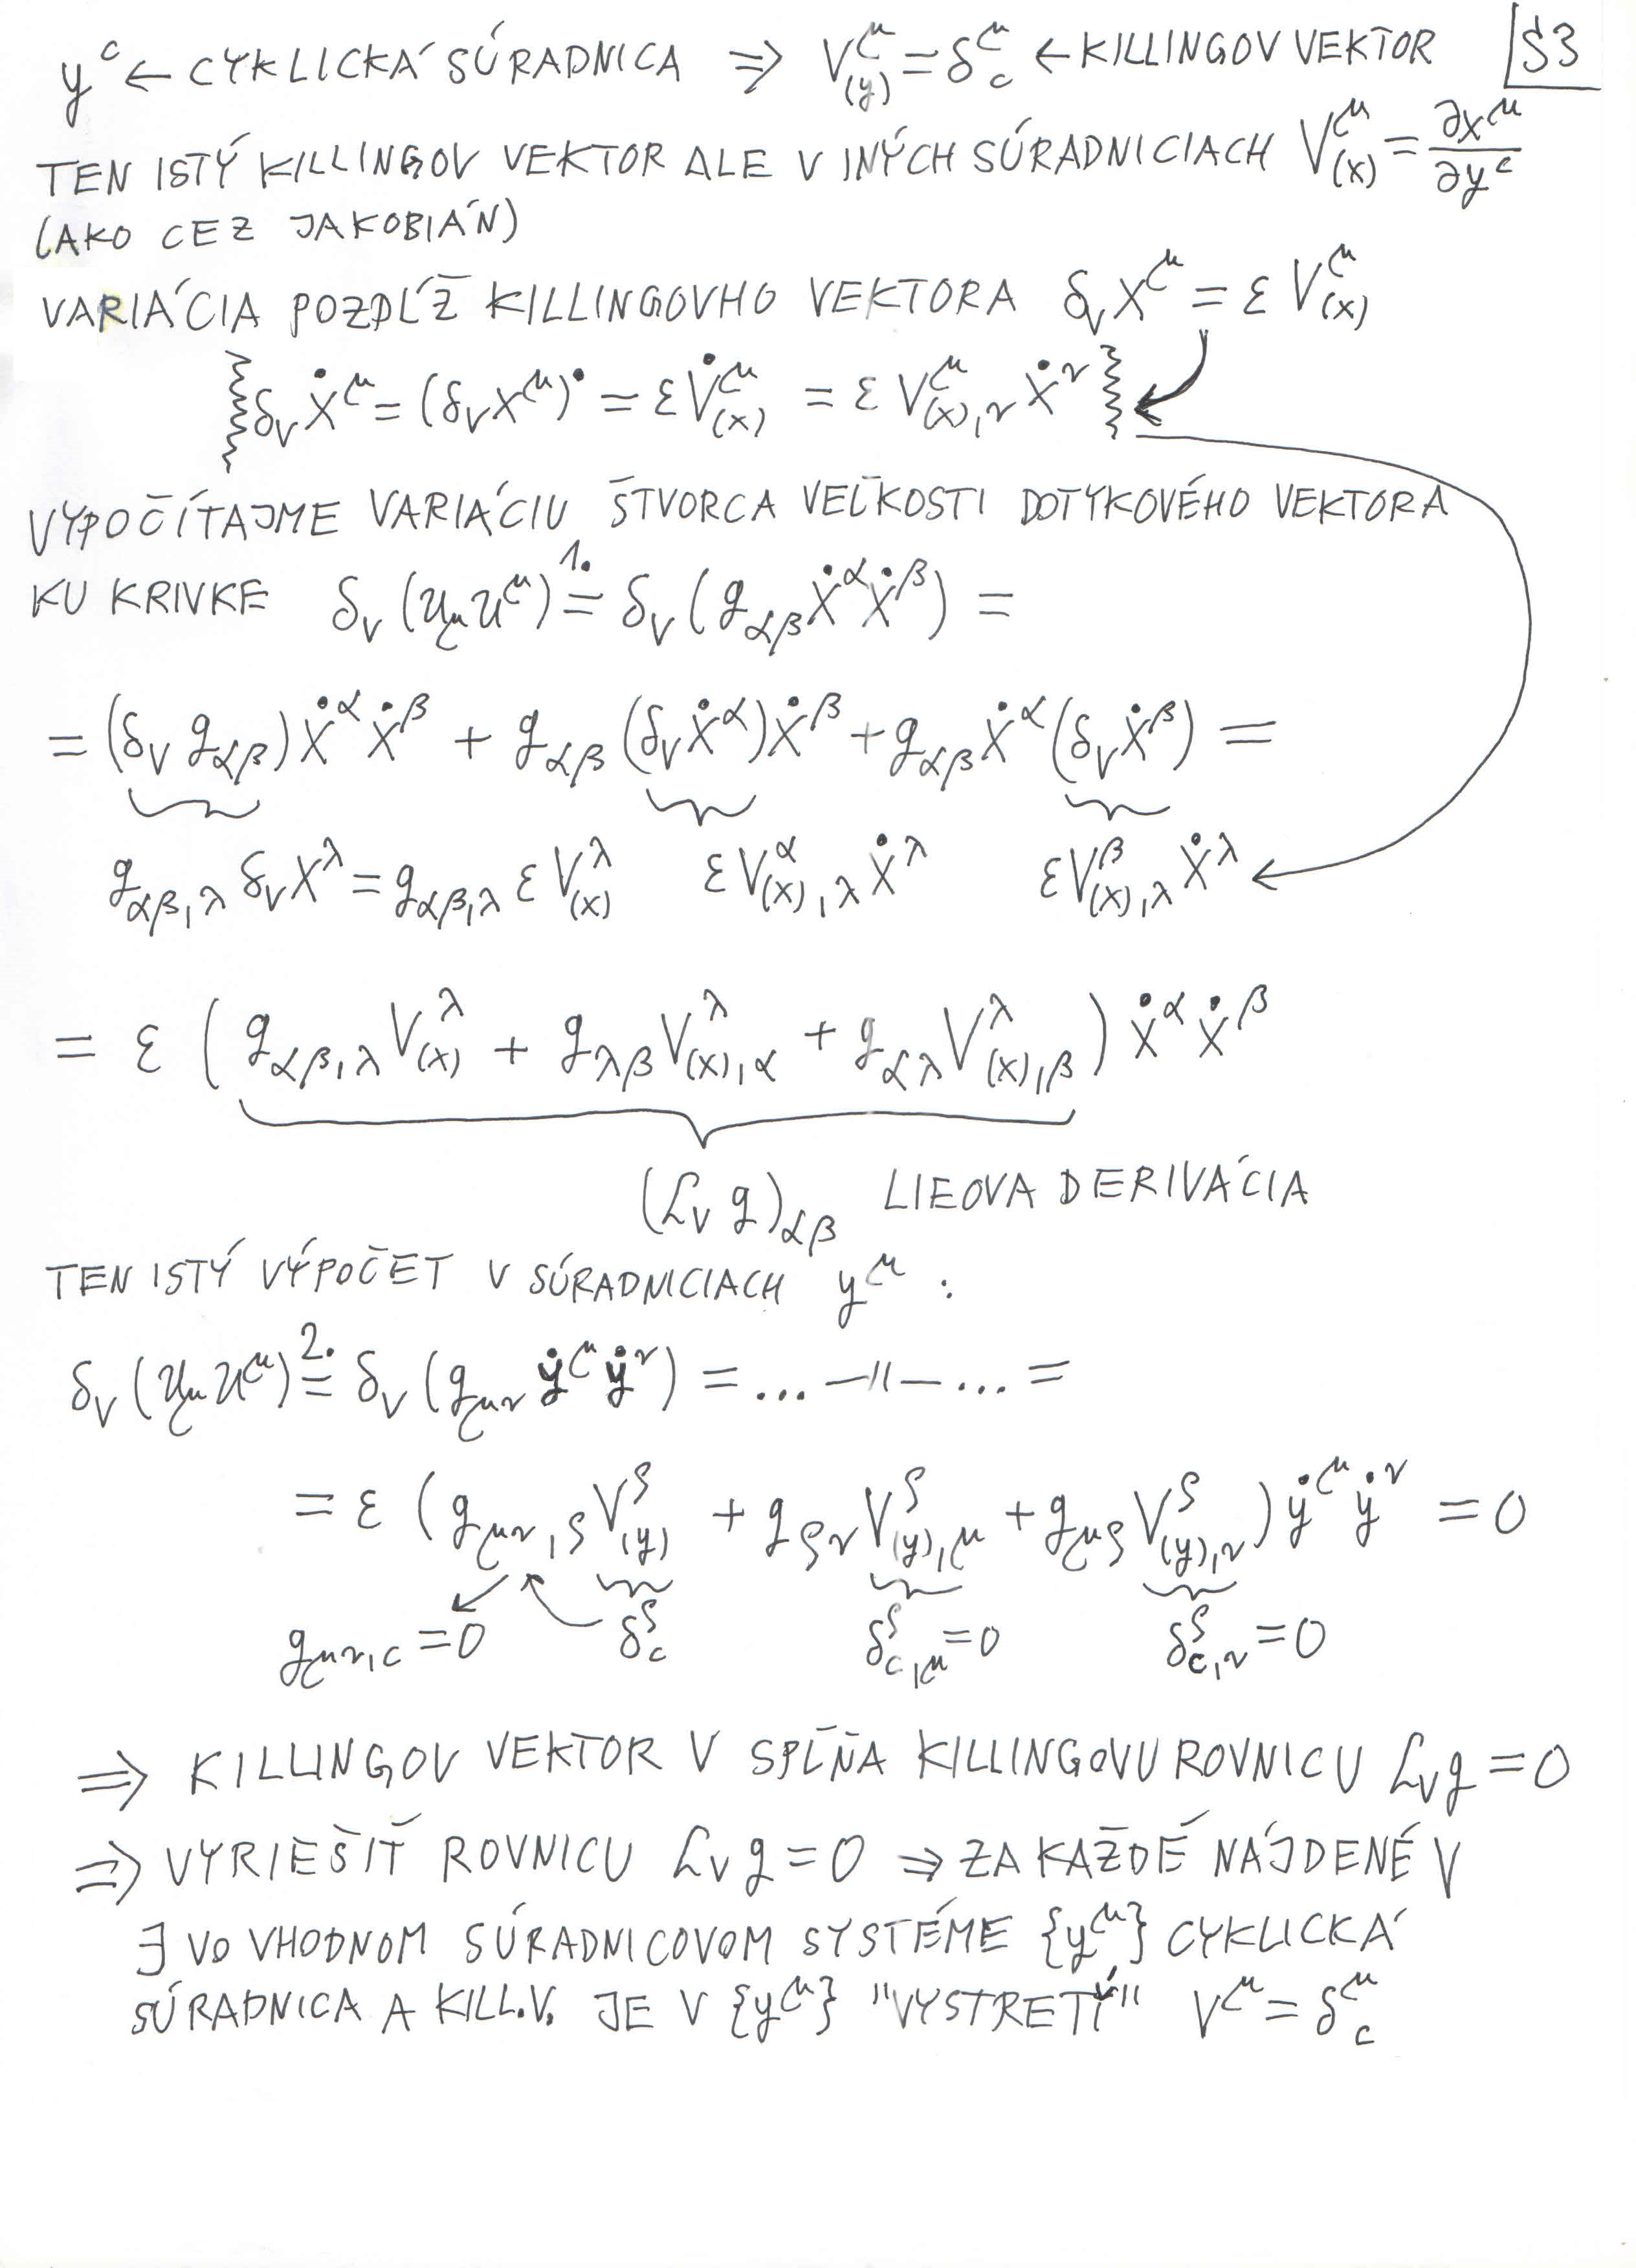 y^c ← CYKLICKÁ SÚRADNICA ⇒ V^μ_(y) = δ^μ_c ← KILLINGOV VEKTOR S3
TEN ISTÝ KILLINGOV VEKTOR ALE V INÝCH SÚRADNICIACH V^μ_(x) = ∂x^μ/∂y^c
(AKO CEZ JAKOBIÁN)
VARIÁCIA POZDĹŽ KILLINGOVHO VEKTORA δ_V x^μ = ε V^μ_(x)
δ_V ẋ^μ = (δ_V x^μ)^• = ε V̇^μ_(x) = ε V^μ_(x),ν ẋ^ν
VYPOČÍTAJME VARIÁCIU ŠTVORCA VEĽKOSTI DOTYKOVÉHO VEKTORA
KU KRIVKE δ_V (u_μ u^μ) =^1. δ_V (g_αβ ẋ^α ẋ^β) =
= (δ_V g_αβ) ẋ^α ẋ^β + g_αβ (δ_V ẋ^α) ẋ^β + g_αβ ẋ^α (δ_V ẋ^β) =
g_αβ,λ δ_V x^λ = g_αβ,λ ε V^λ_(x) ε V^α_(x),λ ẋ^λ ε V^β_(x),λ ẋ^λ
= ε ( g_αβ,λ V^λ_(x) + g_λβ V^λ_(x),α + g_αλ V^λ_(x),β ) ẋ^α ẋ^β
(ℒ_V g)_αβ LIEOVA DERIVÁCIA
TEN ISTÝ VÝPOČET V SÚRADNICIACH y^μ :
δ_V (u_μ u^μ) =^2. δ_V (g_μν ẏ^μ ẏ^ν) = ... —||— ... =
= ε ( g_μν,ρ V^ρ_(y) + g_ρν V^ρ_(y),μ + g_μρ V^ρ_(y),ν ) ẏ^μ ẏ^ν = 0
g_μν,c = 0 δ^ρ_c δ^ρ_c,μ = 0 δ^ρ_c,ν = 0
⇒ KILLINGOV VEKTOR V SPĹŇA KILLINGOVU ROVNICU ℒ_V g = 0
⇒ VYRIEŠIŤ ROVNICU ℒ_V g = 0 ⇒ ZA KAŽDÉ NÁJDENÉ V
∃ VO VHODNOM SÚRADNICOVOM SYSTÉME {y^μ} CYKLICKÁ
SÚRADNICA A KILL.V. JE V {y^μ} "VYSTRETÝ" V^μ = δ^μ_c